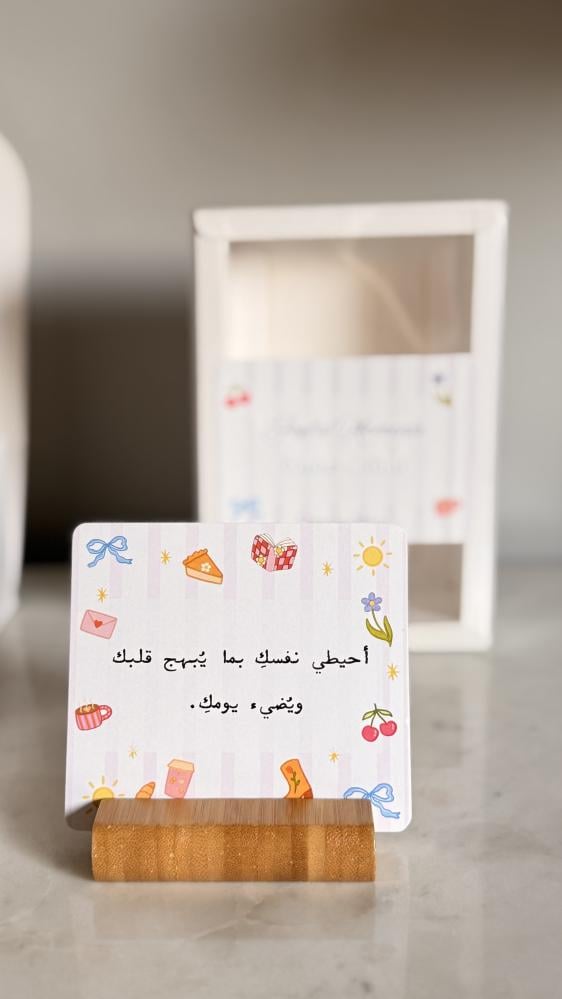 أحيطي نفسكِ بما يُبهج قلبك
ويُضيء يومكِ.